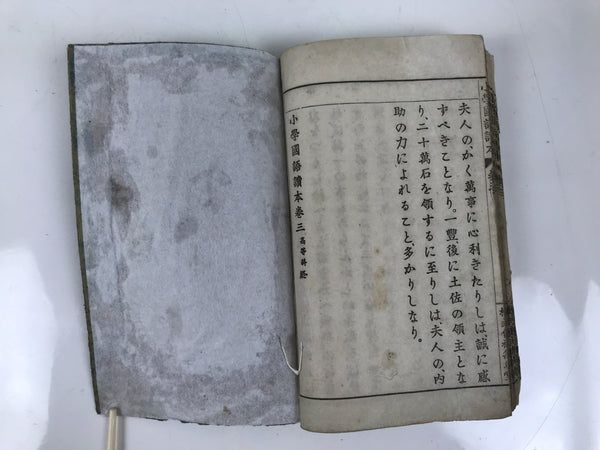 夫人の、かく萬事に心利きたりしは、誠に感
ずべきことなり。一豐、後に土佐の領主とな
り、二十萬石を領するに至りしは、夫人の、內
助の力によれること、多かりしなり。
小學國語讀本卷三 高等科 終